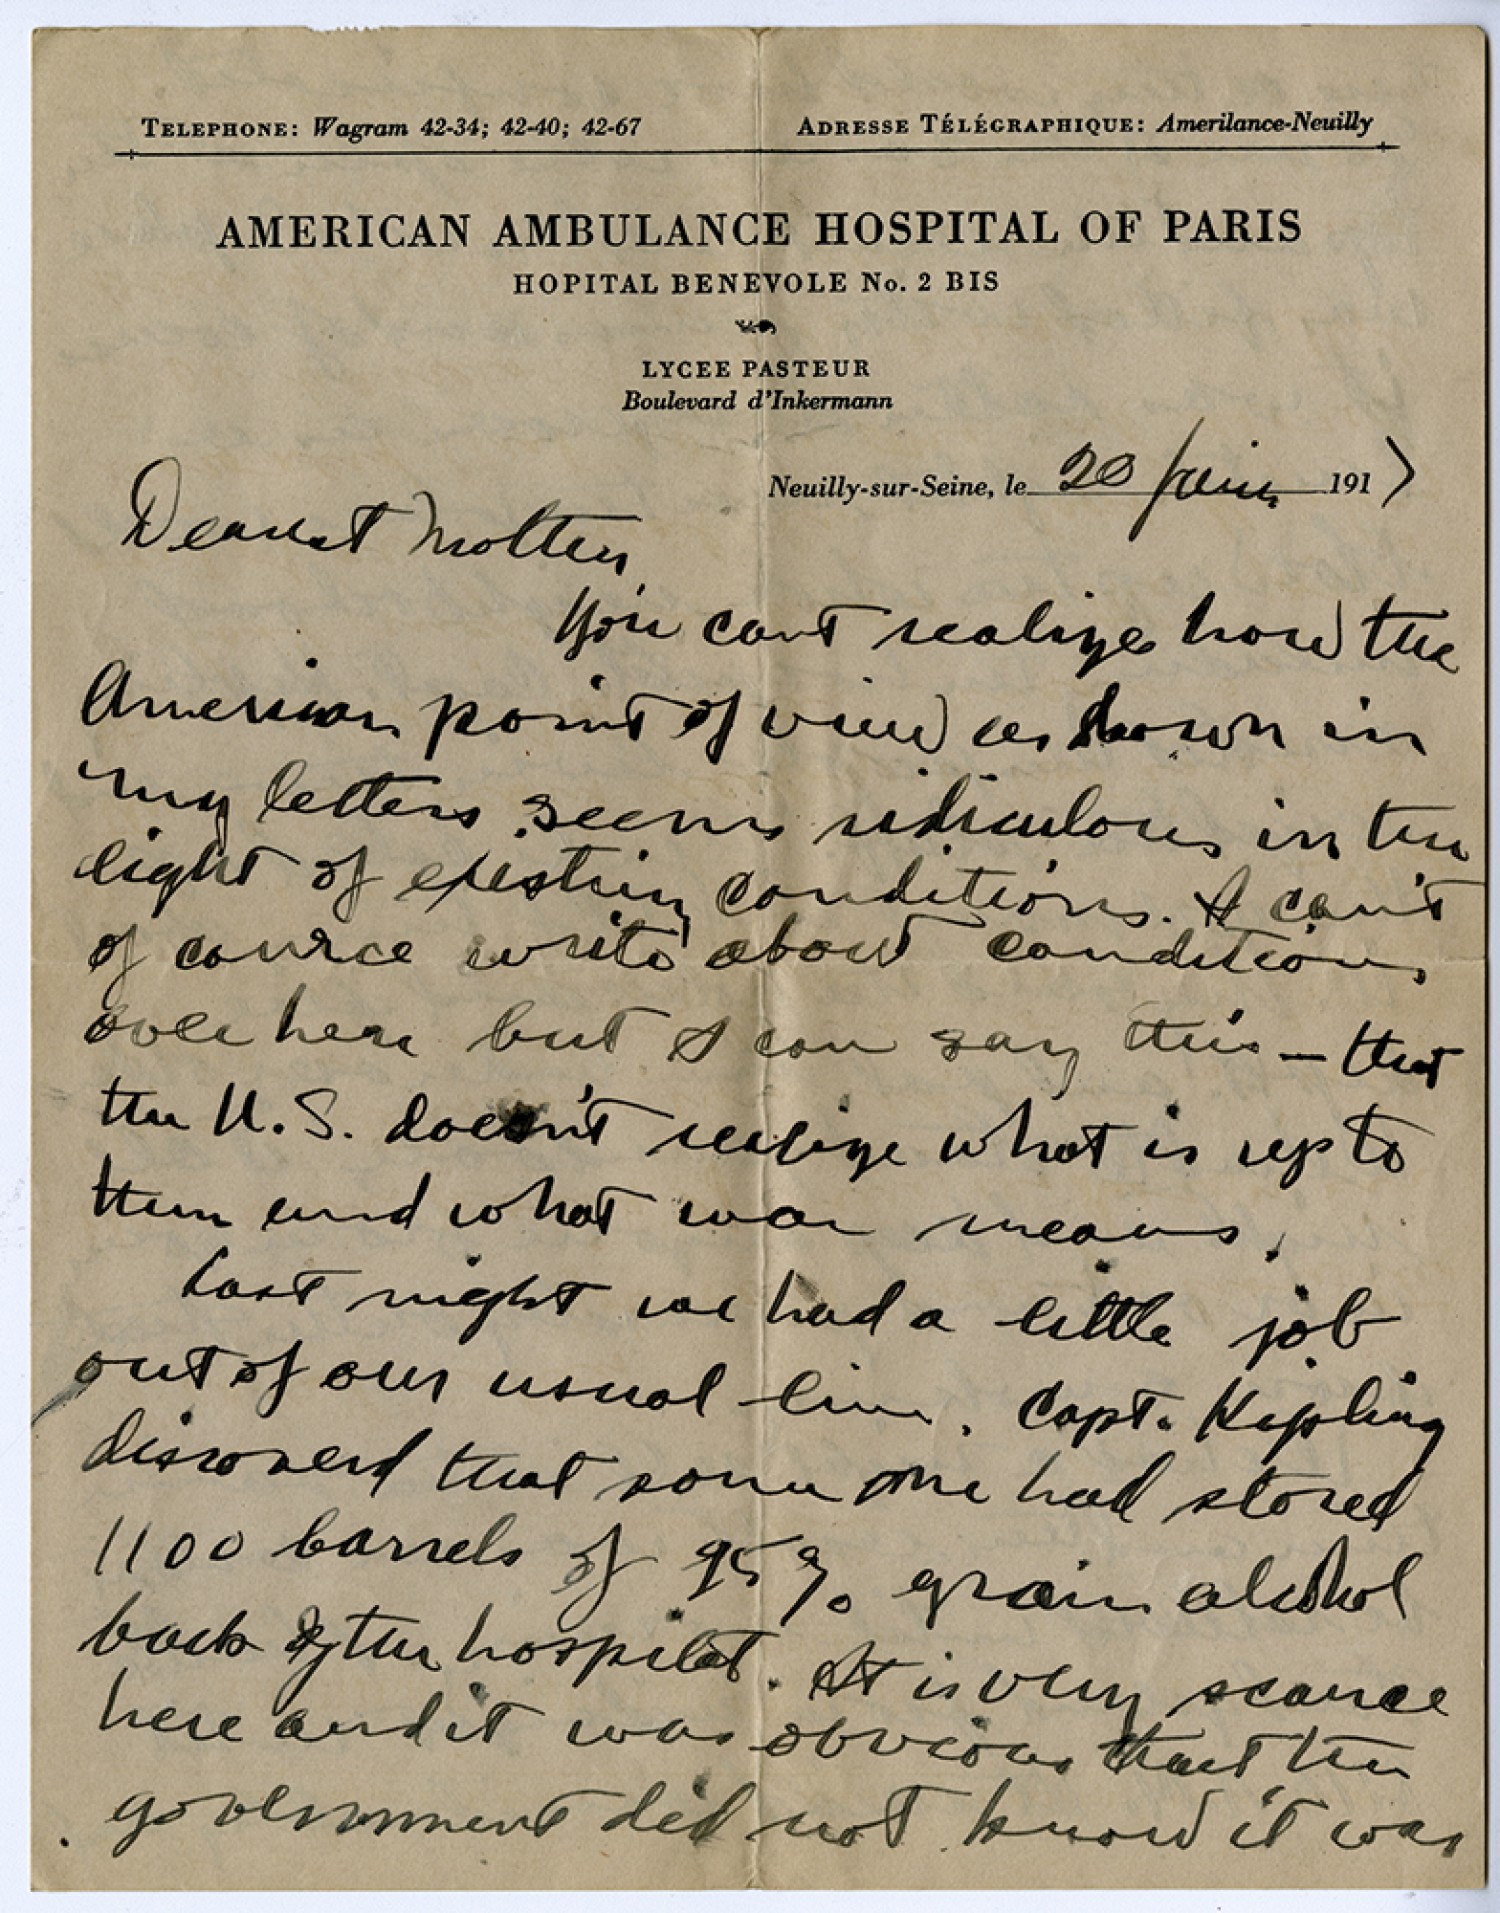 TELEPHONE: Wagram 42-34; 42-40; 42-67
ADRESSE TÉLÉGRAPHIQUE: Amerilance-Neuilly
AMERICAN AMBULANCE HOSPITAL OF PARIS
HOPITAL BENEVOLE No. 2 BIS
LYCEE PASTEUR
Boulevard d'Inkermann
Neuilly-sur-Seine, le 20 Juin 1917
Dearest Mother,
You can't realize how the
American point of view as shown in
my letters seems ridiculous in the
light of existing conditions. I can't
of cource write about conditions
over here but I can say this — that
the U.S. doesn't realize what is up to
them and what war means.
Last night we had a little job
out of our usual line. Capt. Kipling
discoverd that some one had stored
1100 barrels of 95% grain alcohol
back of the hospital. It is very scarce
here and it was obvious that the
government did not know it was